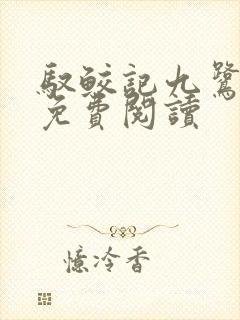 馭鮫記九鷺
免費閱讀
憶冷香